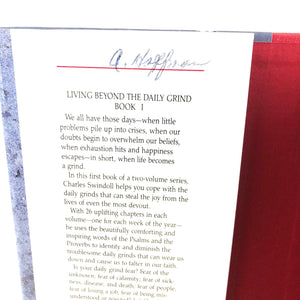 LIVING BEYOND THE DAILY GRIND
BOOK I
We all have those days—when little
problems pile up into crises, when our
doubts begin to overwhelm our beliefs,
when exhaustion hits and happiness
escapes—in short, when life becomes
a grind.
In this first book of a two-volume series,
Charles Swindoll helps you cope with the
daily grinds that can steal the joy from the
lives of even the most devout.
With 26 uplifting chapters in each
volume—one for each week of the year—
he uses the beautifully comforting and
inspiring words of the Psalms and the
Proverbs to identify and diminish the
troublesome daily grinds that can wear us
down and cause us to falter in our faith.
Is your daily grind fear? fear of the
unknown, fear of calamity, fear of sick-
ness, disease, and death, fear of people,
fear of losing a job, fear of being mis-
understood or